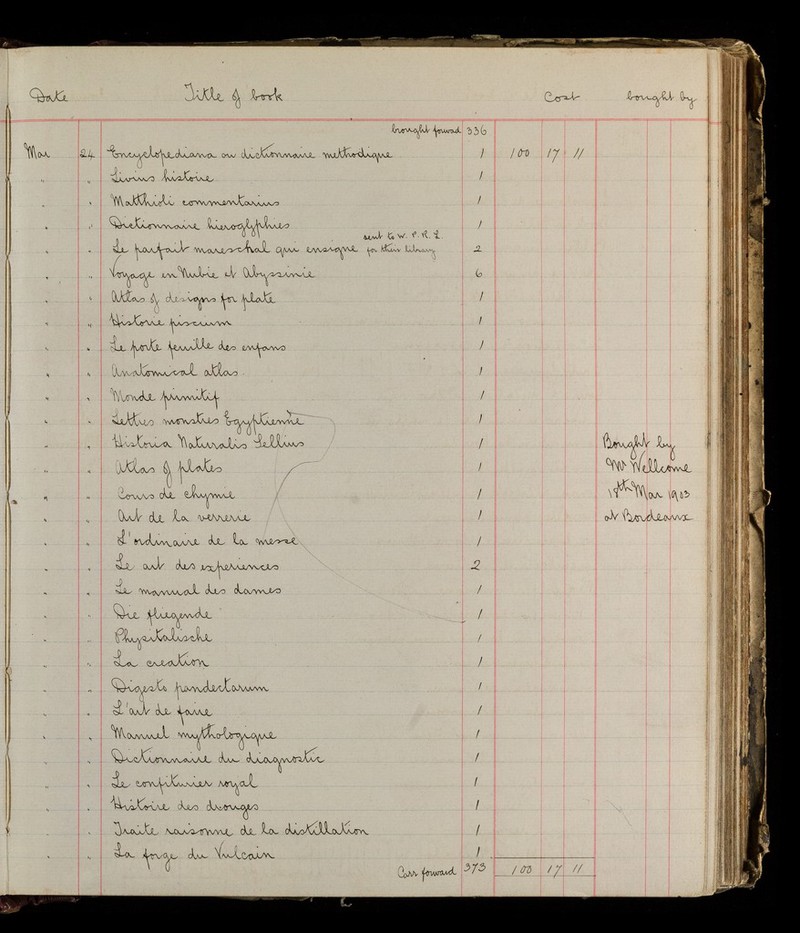 Date Title of book Cost bought by
brought forward 336
Mar 24 Encyclopediana ou dictionnaire methodique 1 100 17 11
" " Livius histoire 1
" " Matthioli commentarius 1
" " Dictionnaire hieroglyphies 1
sent to W. P. R. L.
" " Le parfait mareschal qui enseigne for their library 2
" " Voyage en Nubie et Abyssinie 6
" " Atlas of designs for plate 1
" " Historie piscium 1
" " Le porte feuille des enfans 1
" " Anatomical atlas 1
" " Monde primitif 1
" " Lettres monstres Egyptienne 1
" " Historia Naturalis Sellius 1 Bought by
" " Atlas of plates 1 Mr Wellcome
" " Cours de chymie 1 18th Mar 1903
" " Art de la verrerie 1 at Bordeaux
" " L'ordinaire de la messe 1
" " Le art des experiences 2
" " Le manual des dames 1
" " Die fliegende 1
" " Physitalische 1
" " La creation 1
" " Digesto pandectarum 1
" " L'art de faire 1
" " Manuel mythologique 1
" " Dictionnaire du diagnostic 1
" " Le confiturier royal 1
" " Histoire des drouges 1
" " Traite raisonne de la distillation 1
" " La forge du Vulcain 1
Carr forward 373 100 17 11